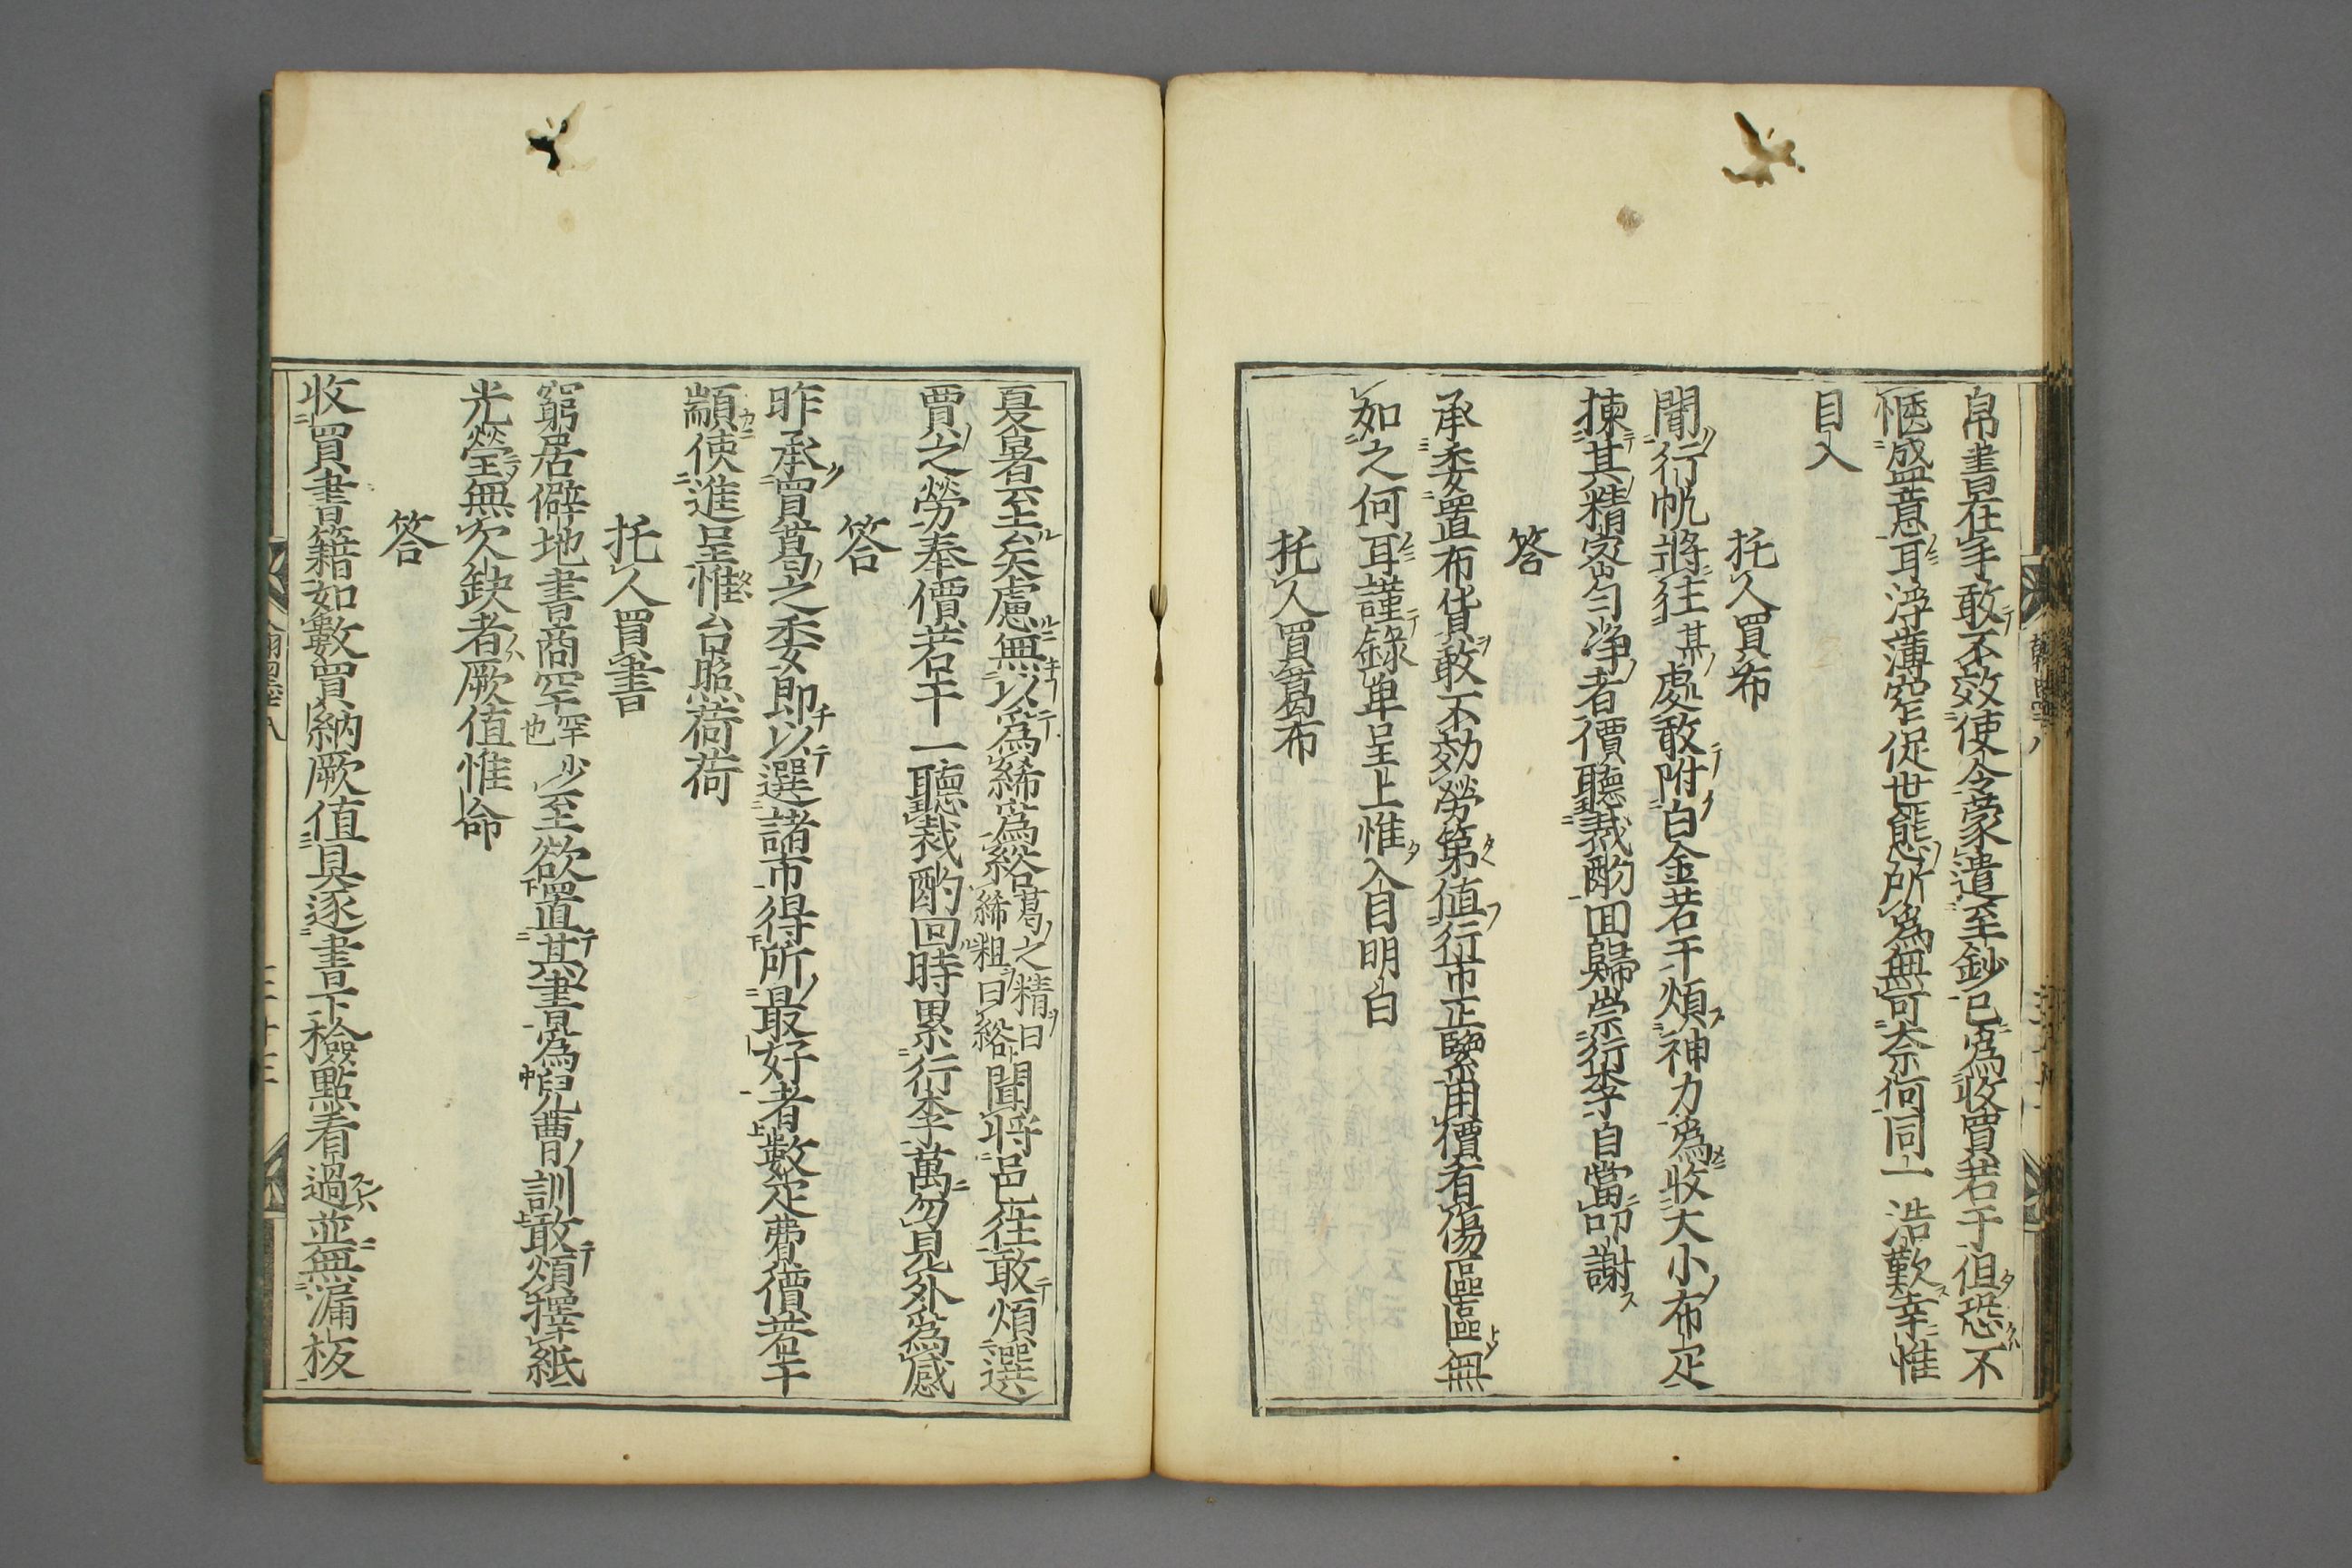 帛書昰在手敢不效使令蒙遣至鈔已爲收買若干但恐不
愜盛意耳浮薄窄促世態所爲無可奈何同一浩歎幸惟
目入
托人買布
聞行帆將往某處敢附白金若干煩神力爲收大小布疋
揀其精密勻净者價聽裁酌回歸崇行李自當叩謝
答
承委置布貨敢不効勞第值行市正鬱用價有傷區區無
如之何耳謹錄单呈上惟入目明白
托人買葛布
夏暑至矣慮無以爲絺爲綌葛之精曰絺粗曰綌聞將邑往敢煩選
買之勞奉價若干一聽裁酌回時累行李萬勿見外爲感
答
昨承買葛之委即以選諸市得所最好者數疋費價若干
顓使進呈惟台照荷荷
托人買書
窮居僻地書商罕罕少也至欲置某書爲兒曹訓敢煩擇紙
光瑩無欠缺者厥值惟命
答
收買書籍如數買納厥值具逐書下檢點看過並無漏板
翰墨八
三十三